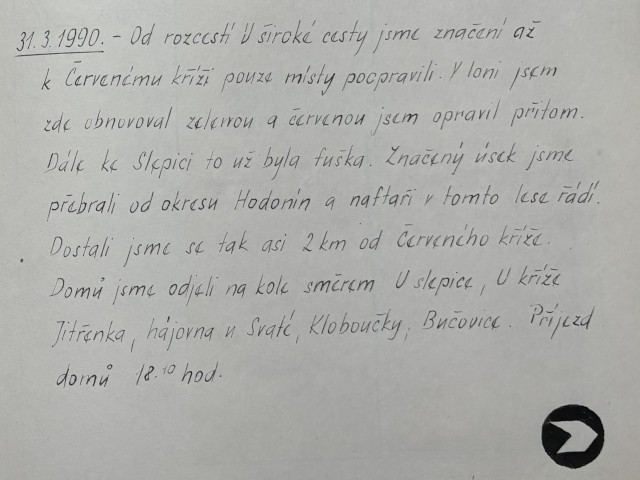 31.3.1990. - Od rozcestí U široké cesty jsme značení až
k Červenému kříži pouze místy pocpravili. V loni jsem
zde obnovoval zelenou a červenou jsem opravil přitom.
Dále ke Slepici to už byla fuška. Značený úsek jsme
přebrali od okresu Hodonín a naftaři v tomto lese řádí.
Dostali jsme se tak asi 2 km od Červeného kříže.
Domů jsme odjeli na kole směrem U slepice, U kříže
Jitřenka, hájovna u Svaté, Kloboučky, Bučovice. Příjezd
domů 18.10 hod.